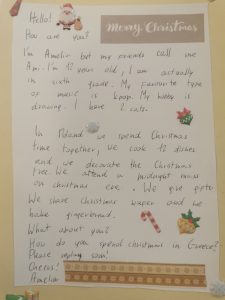 Hello!
Merry Christmas
How are you?
I'm Amelia but my friends call me
Ami. I'm 12 years old, I am actually
in sixth grade. My favourite type
of music is kpop. My hobby is
drawing. I have 2 cats.
In Poland we spend Christmas
time together, we cook 12 dishes
and we decorate the Christmas
tree. We attend a midnight mass
on christmas eve. We give gifts
We share Christmas wafer and we
bake gingerbread.
What about you?
How do you spend christmas in Greece?
Please soon!
Cheers!
Amelia